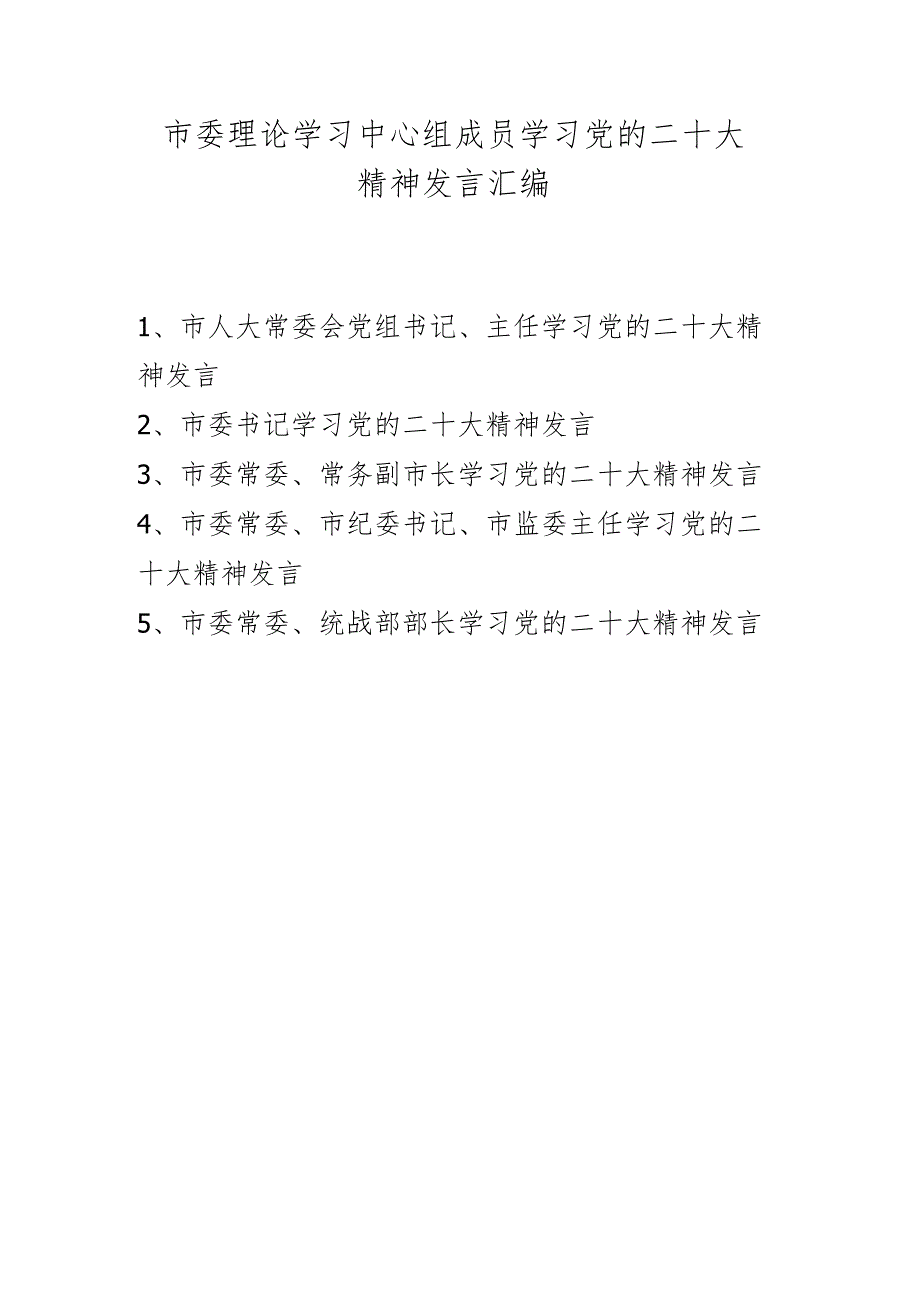 市委理论学习中心组成员学习党的二十大
精神发言汇编
1、市人大常委会党组书记、主任学习党的二十大精
神发言
2、市委书记学习党的二十大精神发言
3、市委常委、常务副市长学习党的二十大精神发言
4、市委常委、市纪委书记、市监委主任学习党的二
十大精神发言
5、市委常委、统战部部长学习党的二十大精神发言